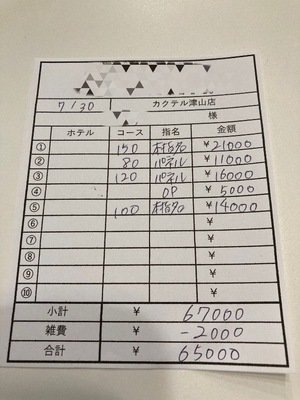 7/30 カクテル津山店
様
ホテル コース 指名 金額
① 150 本指名 ¥21000
② 80 パネル ¥11000
③ 120 パネル ¥16000
④ OP ¥5000
⑤ 100 本指名 ¥14000
⑥ ¥
⑦ ¥
⑧ ¥
⑨ ¥
⑩ ¥
小計 ¥ 67000
雑費 ¥ -2000
合計 ¥ 65000